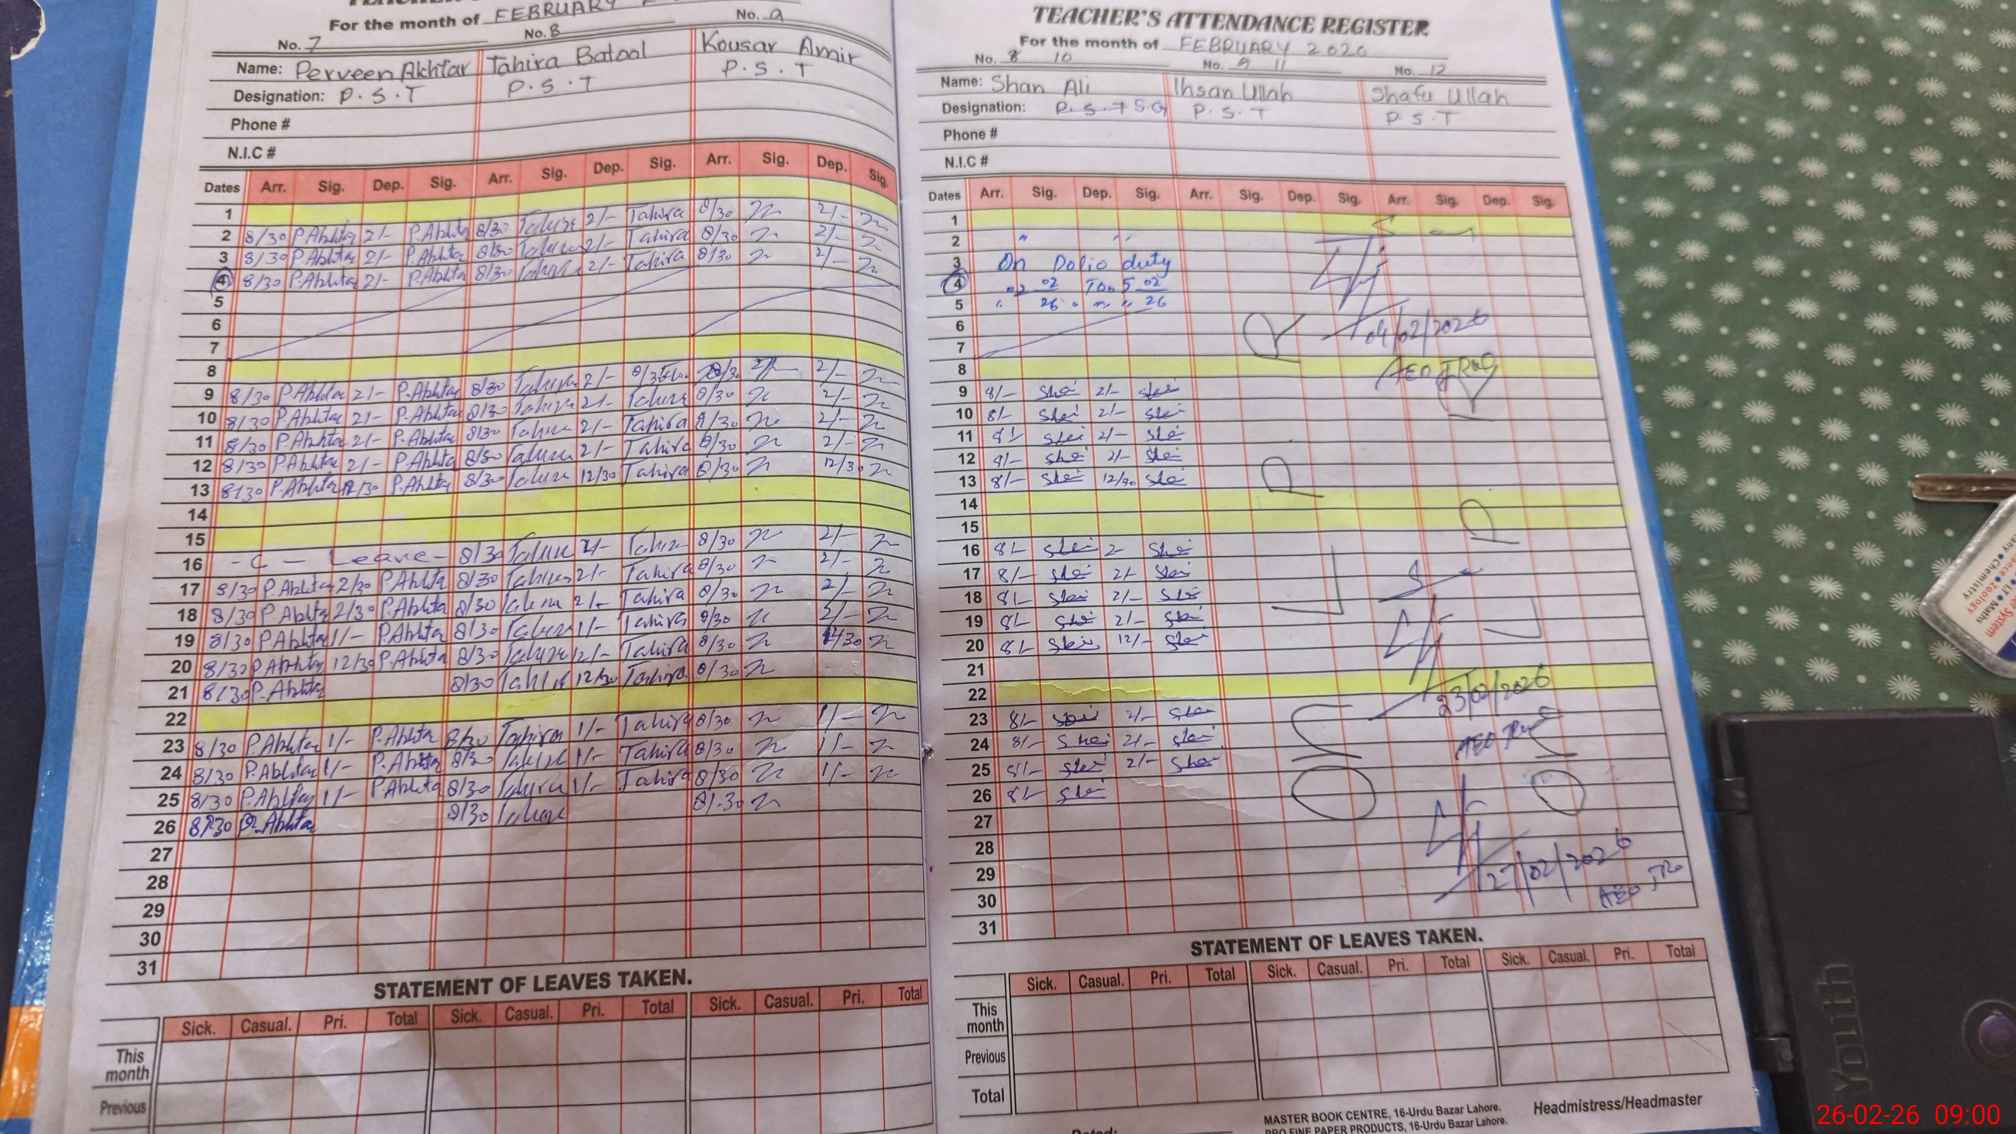 For the month of FEBRUARY
No. 7 No. 8 No. 9
Name: Perveen Akhtar Tahira Batool Kousar Amir
Designation: P.S.T P.S.T P.S.T
Phone #
N.I.C #
Dates Arr. Sig. Dep. Sig. Arr. Sig. Dep. Sig. Arr. Sig. Dep. Sig.
1
2 8/30 P.Akhtar 2/- P.Akhtar 8/30 Tahira 2/- Tahira 8/30 2/-
3 8/30 P.Akhtar 2/- P.Akhtar 8/30 Tahira 2/- Tahira 8/30 2/-
4 8/30 P.Akhtar 2/- P.Akhtar 8/30 Tahira 2/- Tahira 8/30 2/-
5
6
7
8
9 8/30 P.Akhtar 2/- P.Akhtar 8/30 Tahira 2/- 2/-
10 8/30 P.Akhtar 2/- P.Akhtar 8/30 Tahira 2/- Tahira 8/30 2/-
11 8/30 P.Akhtar 2/- P.Akhtar 8/30 Tahira 2/- Tahira 8/30 2/-
12 8/30 P.Akhtar 2/- P.Akhtar 8/30 Tahira 2/- Tahira 8/30 2/-
13 8/30 P.Akhtar 12/30 P.Akhtar 8/30 Tahira 12/30 Tahira 8/30 12/30
14
15
16 - C - Leave - 8/30 Tahira 2/- Tahira 8/30 2/-
17 8/30 P.Akhtar 2/30 P.Akhtar 8/30 Tahira 2/- Tahira 8/30 2/-
18 8/30 P.Akhtar 2/30 P.Akhtar 8/30 Tahira 2/- Tahira 8/30 2/-
19 8/30 P.Akhtar 1/- P.Akhtar 8/30 Tahira 1/- Tahira 8/30
20 8/30 P.Akhtar 12/30 P.Akhtar 8/30 Tahira 12/- Tahira 8/30
21 8/30 P.Akhtar 8/30 Tahira 12/30 Tahira 8/30
22
23 8/30 P.Akhtar 1/- P.Akhtar 8/30 Tahira 1/- Tahira 8/30 1/-
24 8/30 P.Akhtar 1/- P.Akhtar 8/30 Tahira 1/- Tahira 8/30 1/-
25 8/30 P.Akhtar 1/- P.Akhtar 8/30 Tahira 1/- Tahira 8/30 1/-
26 8/30 P.Akhtar 8/30 Tahira 8/-30
27
28
29
30
31
STATEMENT OF LEAVES TAKEN.
Sick. Casual. Pri. Total Sick. Casual. Pri. Total Sick. Casual. Pri. Total
This month
Previous
TEACHER'S ATTENDANCE REGISTER
For the month of FEBRUARY 2026
No. 8 10 No. 9 11 No. 12
Name: Shan Ali Ihsan Ullah Shafu Ullah
Designation: P.S.T P.S.T P.S.T
Phone #
N.I.C #
Dates Arr. Sig. Dep. Sig. Arr. Sig. Dep. Sig. Arr. Sig. Dep. Sig.
1
2
3 On Polio duty
4 02 02 To 5 02
5 26 26
6 04/02/2026
7
8 AEO
9 8/- 2/-
10 8/- 2/-
11 8/- 2/-
12 8/- 2/-
13 8/- 12/30
14
15
16 8/- 2
17 8/- 2/-
18 8/- 2/-
19 8/- 2/-
20 8/- 12/-
21
22 23/02/2026
23 8/- 2/-
24 8/- 2/- AEO
25 8/- 2/-
26 8/-
27
28
29 27/02/2026
30 AEO
31
STATEMENT OF LEAVES TAKEN.
Sick. Casual. Pri. Total Sick. Casual. Pri. Total Sick. Casual. Pri. Total
This month
Previous
Total
MASTER BOOK CENTRE, 16-Urdu Bazar Lahore.
PRO FINE PAPER PRODUCTS, 16-Urdu Bazar Lahore.
Headmistress/Headmaster
Youth
26-02-26 09:00